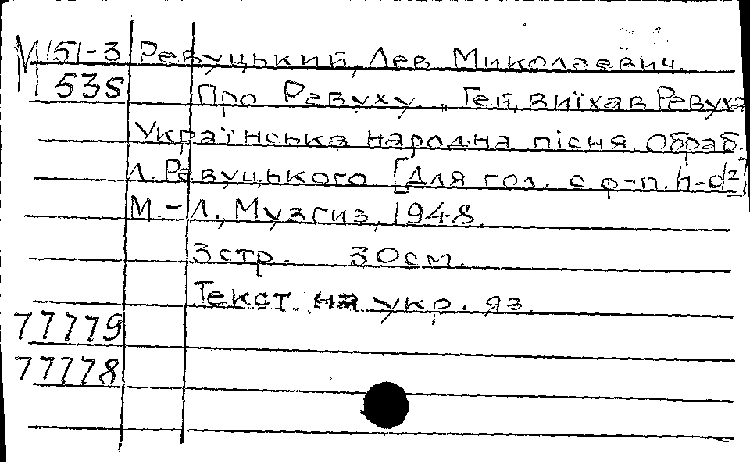 М 151-3 Ревуцький, Лев Миколаевич.
538 Про Ревуху. "Гей, виїхав Ревуха
Українська народна пісня. Обраб.
Л. Ревуцького [Для гол. с ф-п. h-d²]
М - Л., Музгиз, 1948.
3 стр. 30 см.
Текст на укр. яз.
77779
77778